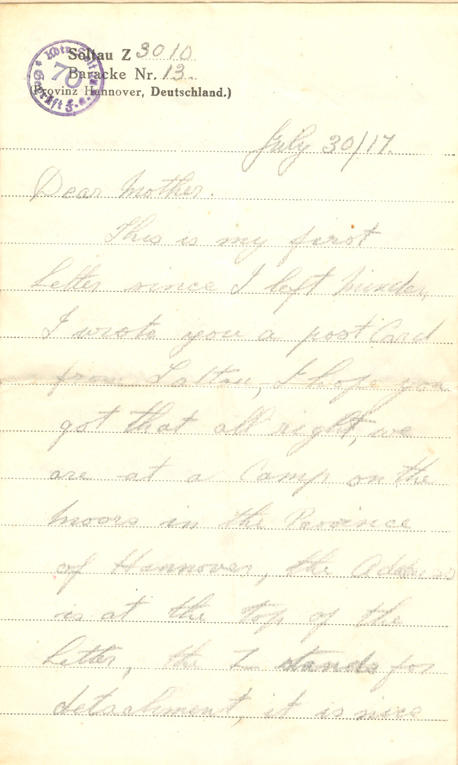 Soltau Z 3010
Baracke Nr. 13.
(Provinz Hannover, Deutschland.)
70
Geprüft F. a.
July 30/17.
Dear Mother.
This is my first
letter since I left Minden,
I wrote you a post Card
from Soltau, I hope you
got that all right, we
are at a Camp on the
moors in the Province
of Hannover, the Address
is at the top of the
letter, the Z stands for
detachment, it is nice